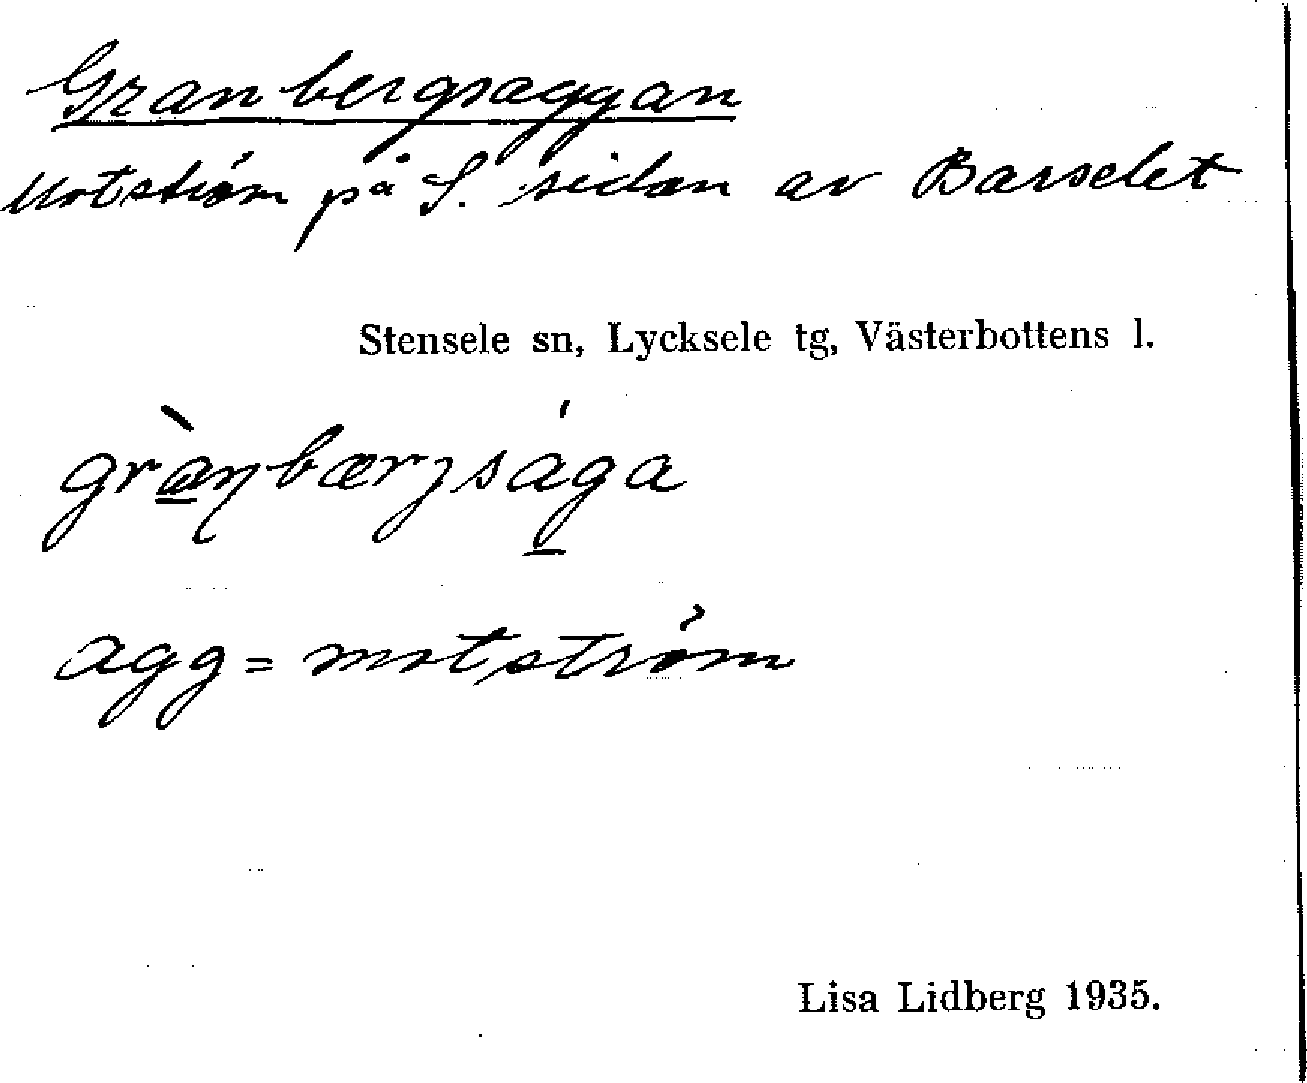 Granbergsaggan
Motström på S. sidan av Barselet
Stensele sn, Lycksele tg, Västerbottens l.
grànbærjsága
agg = motström
Lisa Lidberg 1935.